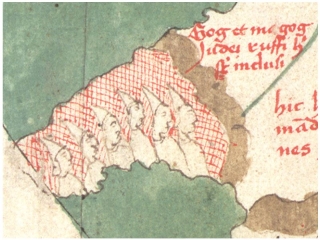 Gog et magog
iudei ruffi h
st inclusi
hic
mad
nes